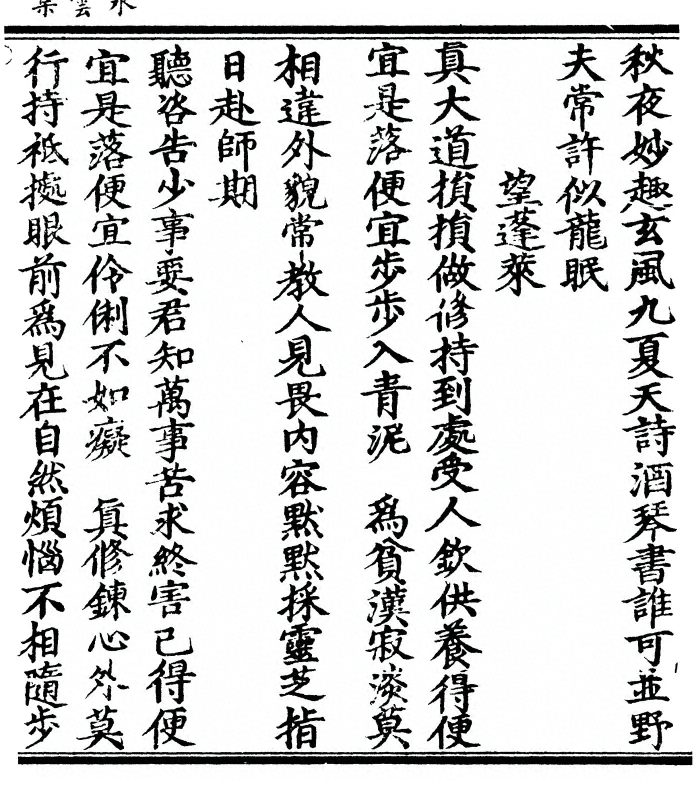 秋夜妙趣玄風九夏天詩酒琴書誰可並野
夫常許似龍眠
望蓬萊
真大道摃摃做修持到處受人欽供養得便
宜是落便宜步步入青泥　爲貧漢寂淡莫
相違外貌常教人見畏内容默默採靈芝指
日赴師期
聽咨告少事要君知萬事苦求終害己得便
宜是落便宜伶俐不如癡　真修鍊心外莫
行持祗擬眼前爲見在自然煩惱不相隨步